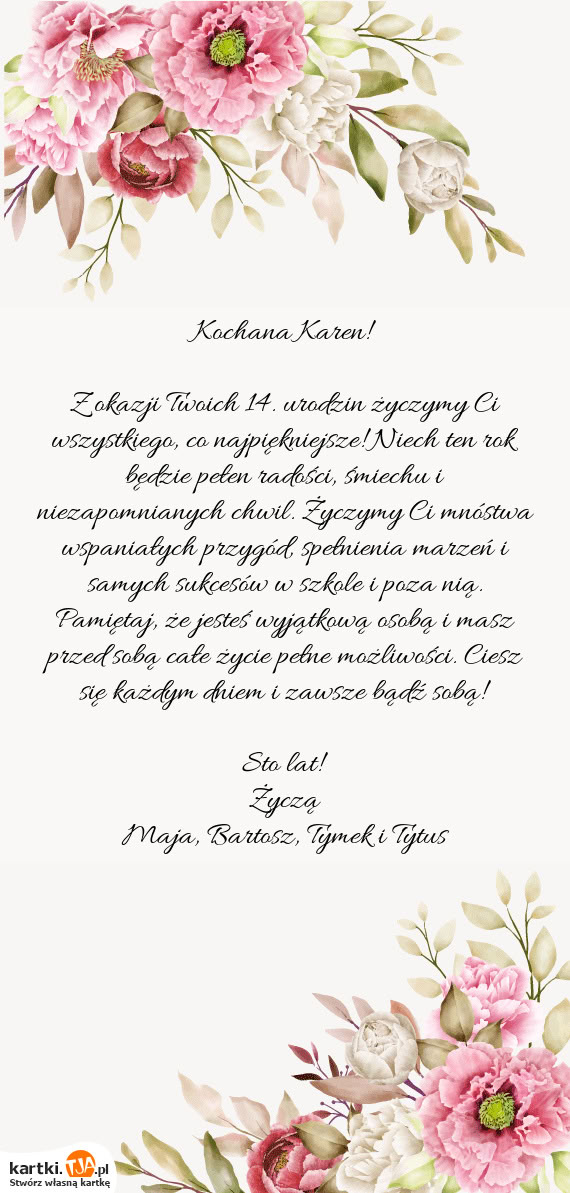 Kochana Karen!
Z okazji Twoich 14. urodzin życzymy Ci
wszystkiego, co najpiękniejsze! Niech ten rok
będzie pełen radości, śmiechu i
niezapomnianych chwil. Życzymy Ci mnóstwa
wspaniałych przygód, spełnienia marzeń i
samych sukcesów w szkole i poza nią.
Pamiętaj, że jesteś wyjątkową osobą i masz
przed sobą całe życie pełne możliwości. Ciesz
się każdym dniem i zawsze bądź sobą!
Sto lat!
Życzą
Maja, Bartosz, Tymek i Tytus
kartki.TJA.pl
Stwórz własną kartkę